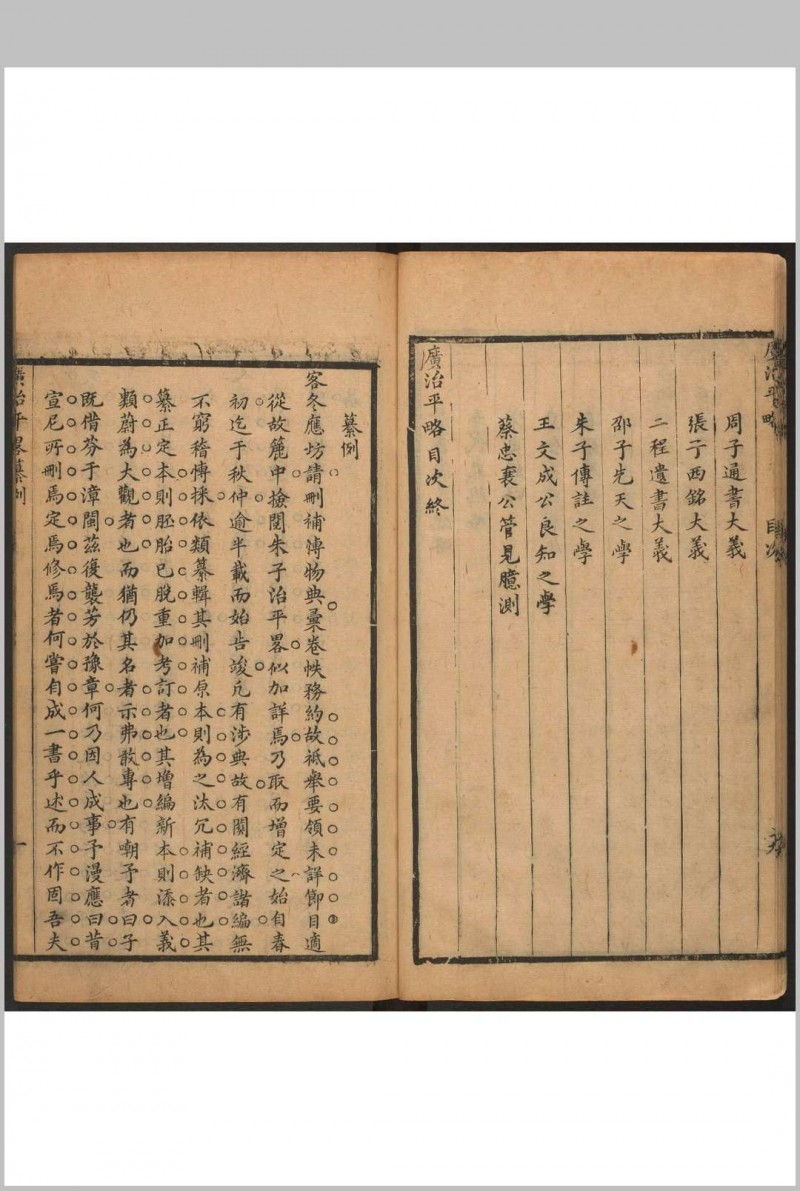 廣治平略 目次
周子通書大義
張子西銘大義
二程遺書大義
邵子先天之學
朱子傳註之學
王文成公良知之學
蔡忠襄公管見臆測
廣治平略目次終
纂例
客冬應坊請刪補博物典彙卷帙務約故祇舉要領未詳節目適
從故簏中撿閱朱子治平畧似加詳焉乃取而增定之始自春
初迄于秋仲逾半載而始告竣凡有涉典故有關經濟諸編無
不窮稽慱採依類纂輯其刪補原本則為之汰冗補缺者也其
纂正定本則胚胎已脫重加考訂者也其增編新本則添入義
類蔚為大觀者也而猶仍其名者示弗敢專也有嘲予者曰子
既借芬于漳閩茲復襲芳於豫章何乃因人成事予漫應曰昔
宣尼所刪焉定焉修焉者何嘗自成一書乎述而不作固吾夫
廣治平畧纂例
一